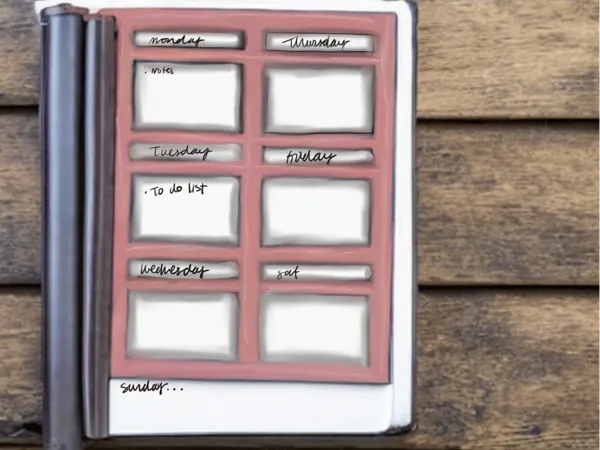 monday
Thursday
. Notes
Tuesday
friday
. To do list
wednesday
sat
sunday...